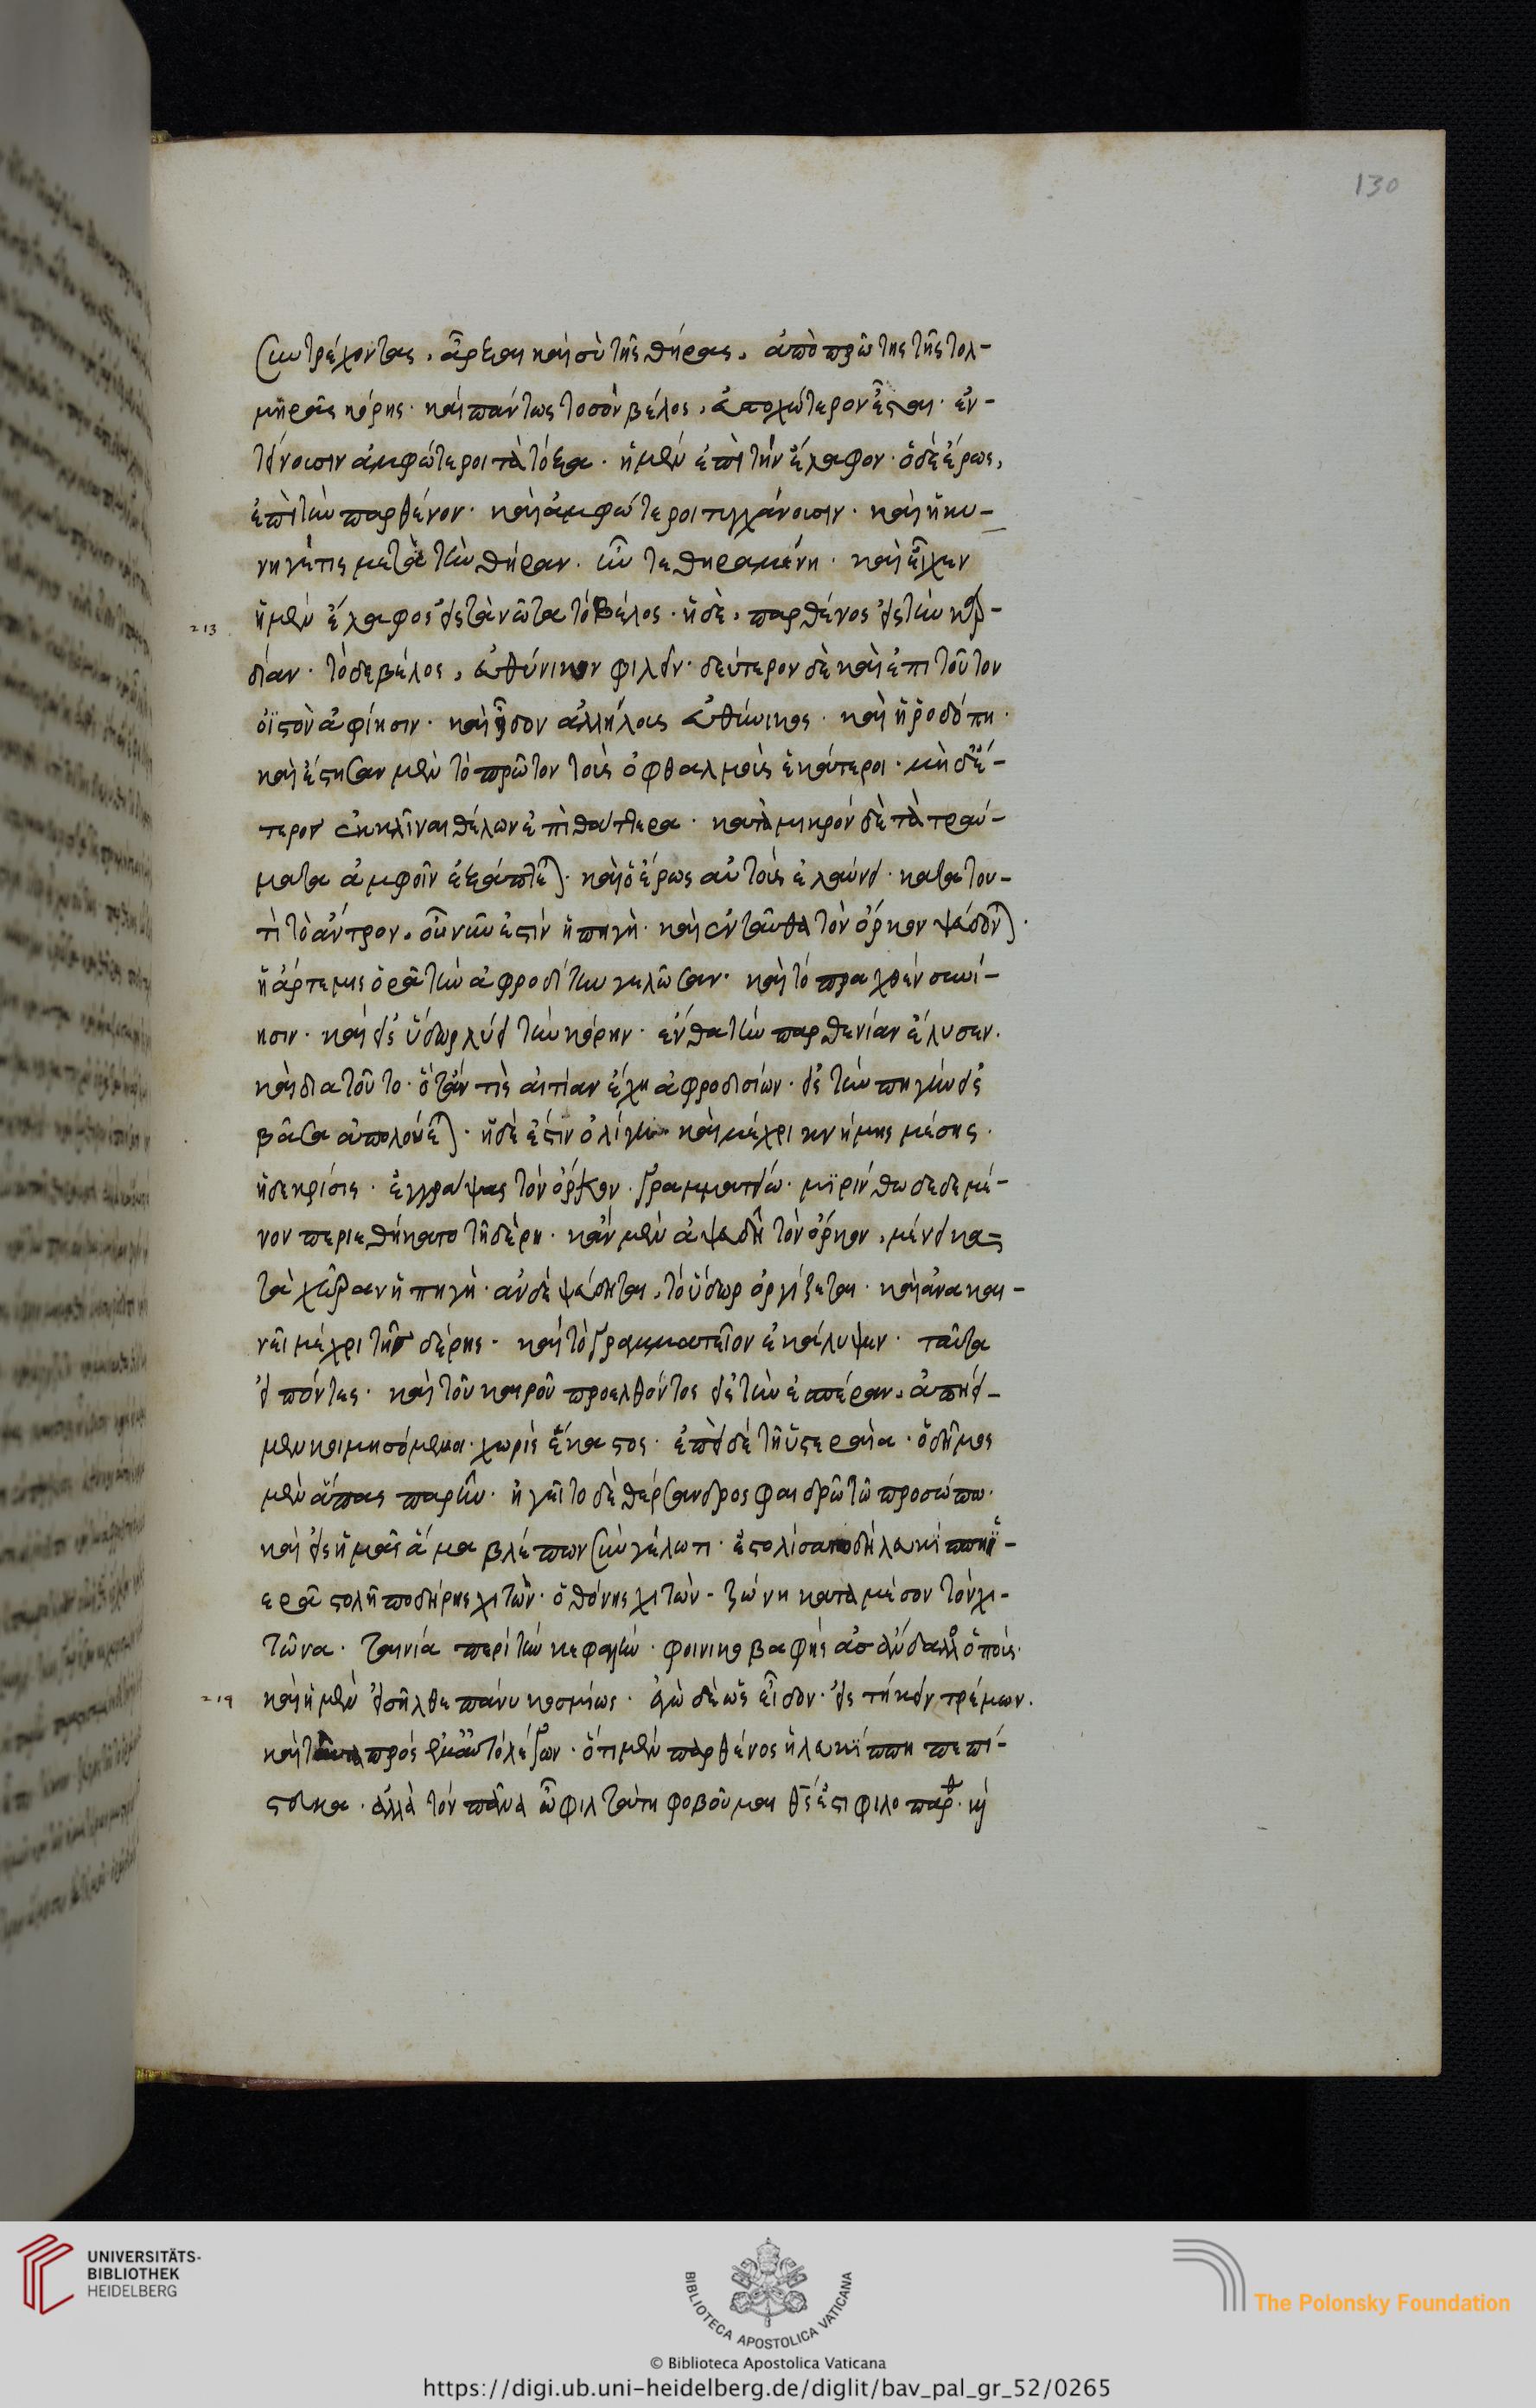 130
συντρέχοντας. ἄρξαι καὶ σὺ τῆς θήρας. ἀπὸ πρώτης τῆς τολ-
μηρᾶς κόρης. καὶ πάντως τὸ σὸν βέλος, εὐστοχώτερον ἔσται. ἐν-
τείνουσιν ἀμφότεροι τὰ τόξα. ἡ μὲν ἐπὶ τὴν ἔλαφον. ὁ δὲ ἔρως,
ἐπὶ τὴν παρθένον. καὶ ἀμφότεροι τυγχάνουσιν. καὶ ἡ κυ-
νηγέτις μετὰ τὴν θήραν. ἦν τεθηραμένη. καὶ εἶχεν
213 ἡ μὲν ἔλαφος εἰς τὰ νῶτα τὸ βέλος. ἡ δὲ, παρθένος εἰς τὴν καρ-
δίαν. τὸ δὲ βέλος, εὐθύνικον φιλεῖν. δεύτερον δὲ καὶ ἐπὶ τοῦτον
ὀϊστὸν ἀφίησιν. καὶ εἶδον ἀλλήλους εὐθύνικος. καὶ ἡ ῥοδόπη.
καὶ ἔστησαν μὲν τὸ πρῶτον τοὺς ὀφθαλμοὺς ἑκάτεροι. μηδέ-
τερος ἐκκλῖναι θέλων ἐπὶ θάτερα. κατὰ μικρὸν δὲ τὰ τραύ-
ματα ἀμφοῖν ἐξάπτεται. καὶ ὁ ἔρως αὐτοὺς ἐλαύνει. κατὰ του-
τὶ τὸ ἄντρον. οὗ νῦν ἐστὶν ἡ πηγή. καὶ ἐνταῦθα τὸν ὅρκον ψεύδονται.
ἡ ἄρτεμις ὁρᾶ τὴν ἀφροδίτην γελῶσαν. καὶ τὸ πραχθὲν συνί-
ησιν. καὶ εἰς ὕδωρ λύει τὴν κόρην. ἔνθα τὴν παρθενίαν ἔλυσεν.
καὶ διὰ τοῦτο. ὅταν τις αἰτίαν ἔχη ἀφροδισίων. εἰς τὴν πηγὴν εἰσ
βᾶσα ἀπολούεται. ἡ δὲ ἐστὶν ὀλίγη καὶ μέχρι κνήμης μέσης.
ἡ δὲ κρίσις. ἐγγράψας τὸν ὅρκον. γραμματείω. μιρίνθω δεδεμέ-
νον περιεθήκατο τῆ δέρη. κἂν μὲν ἀψευδῆ τὸν ὅρκον, μένει κα-
τὰ χώραν ἡ πηγή. ἂν δὲ ψεύδηται, τὸ ὕδωρ ὀργίζεται. καὶ ἀναβαί-
νει μέχρι τῆς δέρης. καὶ τὸ γραμματεῖον ἐκάλυψεν. ταῦτα
εἰπόντες. καὶ τοῦ καιροῦ προελθόντος εἰς τὴν ἑσπέραν. ἀπήει-
μεν κοιμησόμενοι. χωρὶς ἕκαστος. ἐπεὶ δὲ τῆ ὑστεραία. ὁ δῆμος
μὲν ἅπας παρῆν. ἡγεῖτο δὲ θέρσανδρος φαιδρῶ τῶ προσώπω.
καὶ εἰς ἡμᾶς ἅμα βλέπων σὺν γέλωτι. ἐστόλιστο δὴ λευκίππη ἱ-
ερᾶ στολῆ ποδήρης χιτών. ὀθόνης χιτών. ζώνη κατὰ μέσον τὸν χι-
τῶνα. ταινία περὶ τὴν κεφαλὴν. φοινικοβαφὴς ἀσάνδαλος ὁ ποῦς.
219 καὶ ἡ μὲν εἰσῆλθε πάνυ κοσμίως. ἐγὼ δὲ ὡς εἶδον. εἱστήκειν τρέμων.
καὶ ταῦτα πρὸς ἐμαυτὸν λέγων. ὅτι μὲν παρθένος ἡ λευκίππη πεπί-
στευκα. ἀλλὰ τὸν πᾶνα ὦ φιλτάτη φοβοῦμαι θεός ἐστι φιλοπάρθ. καὶ
UNIVERSITÄTS-
BIBLIOTHEK
HEIDELBERG
BIBLIOTECA APOSTOLICA VATICANA
© Biblioteca Apostolica Vaticana
The Polonsky Foundation
https://digi.ub.uni-heidelberg.de/diglit/bav_pal_gr_52/0265